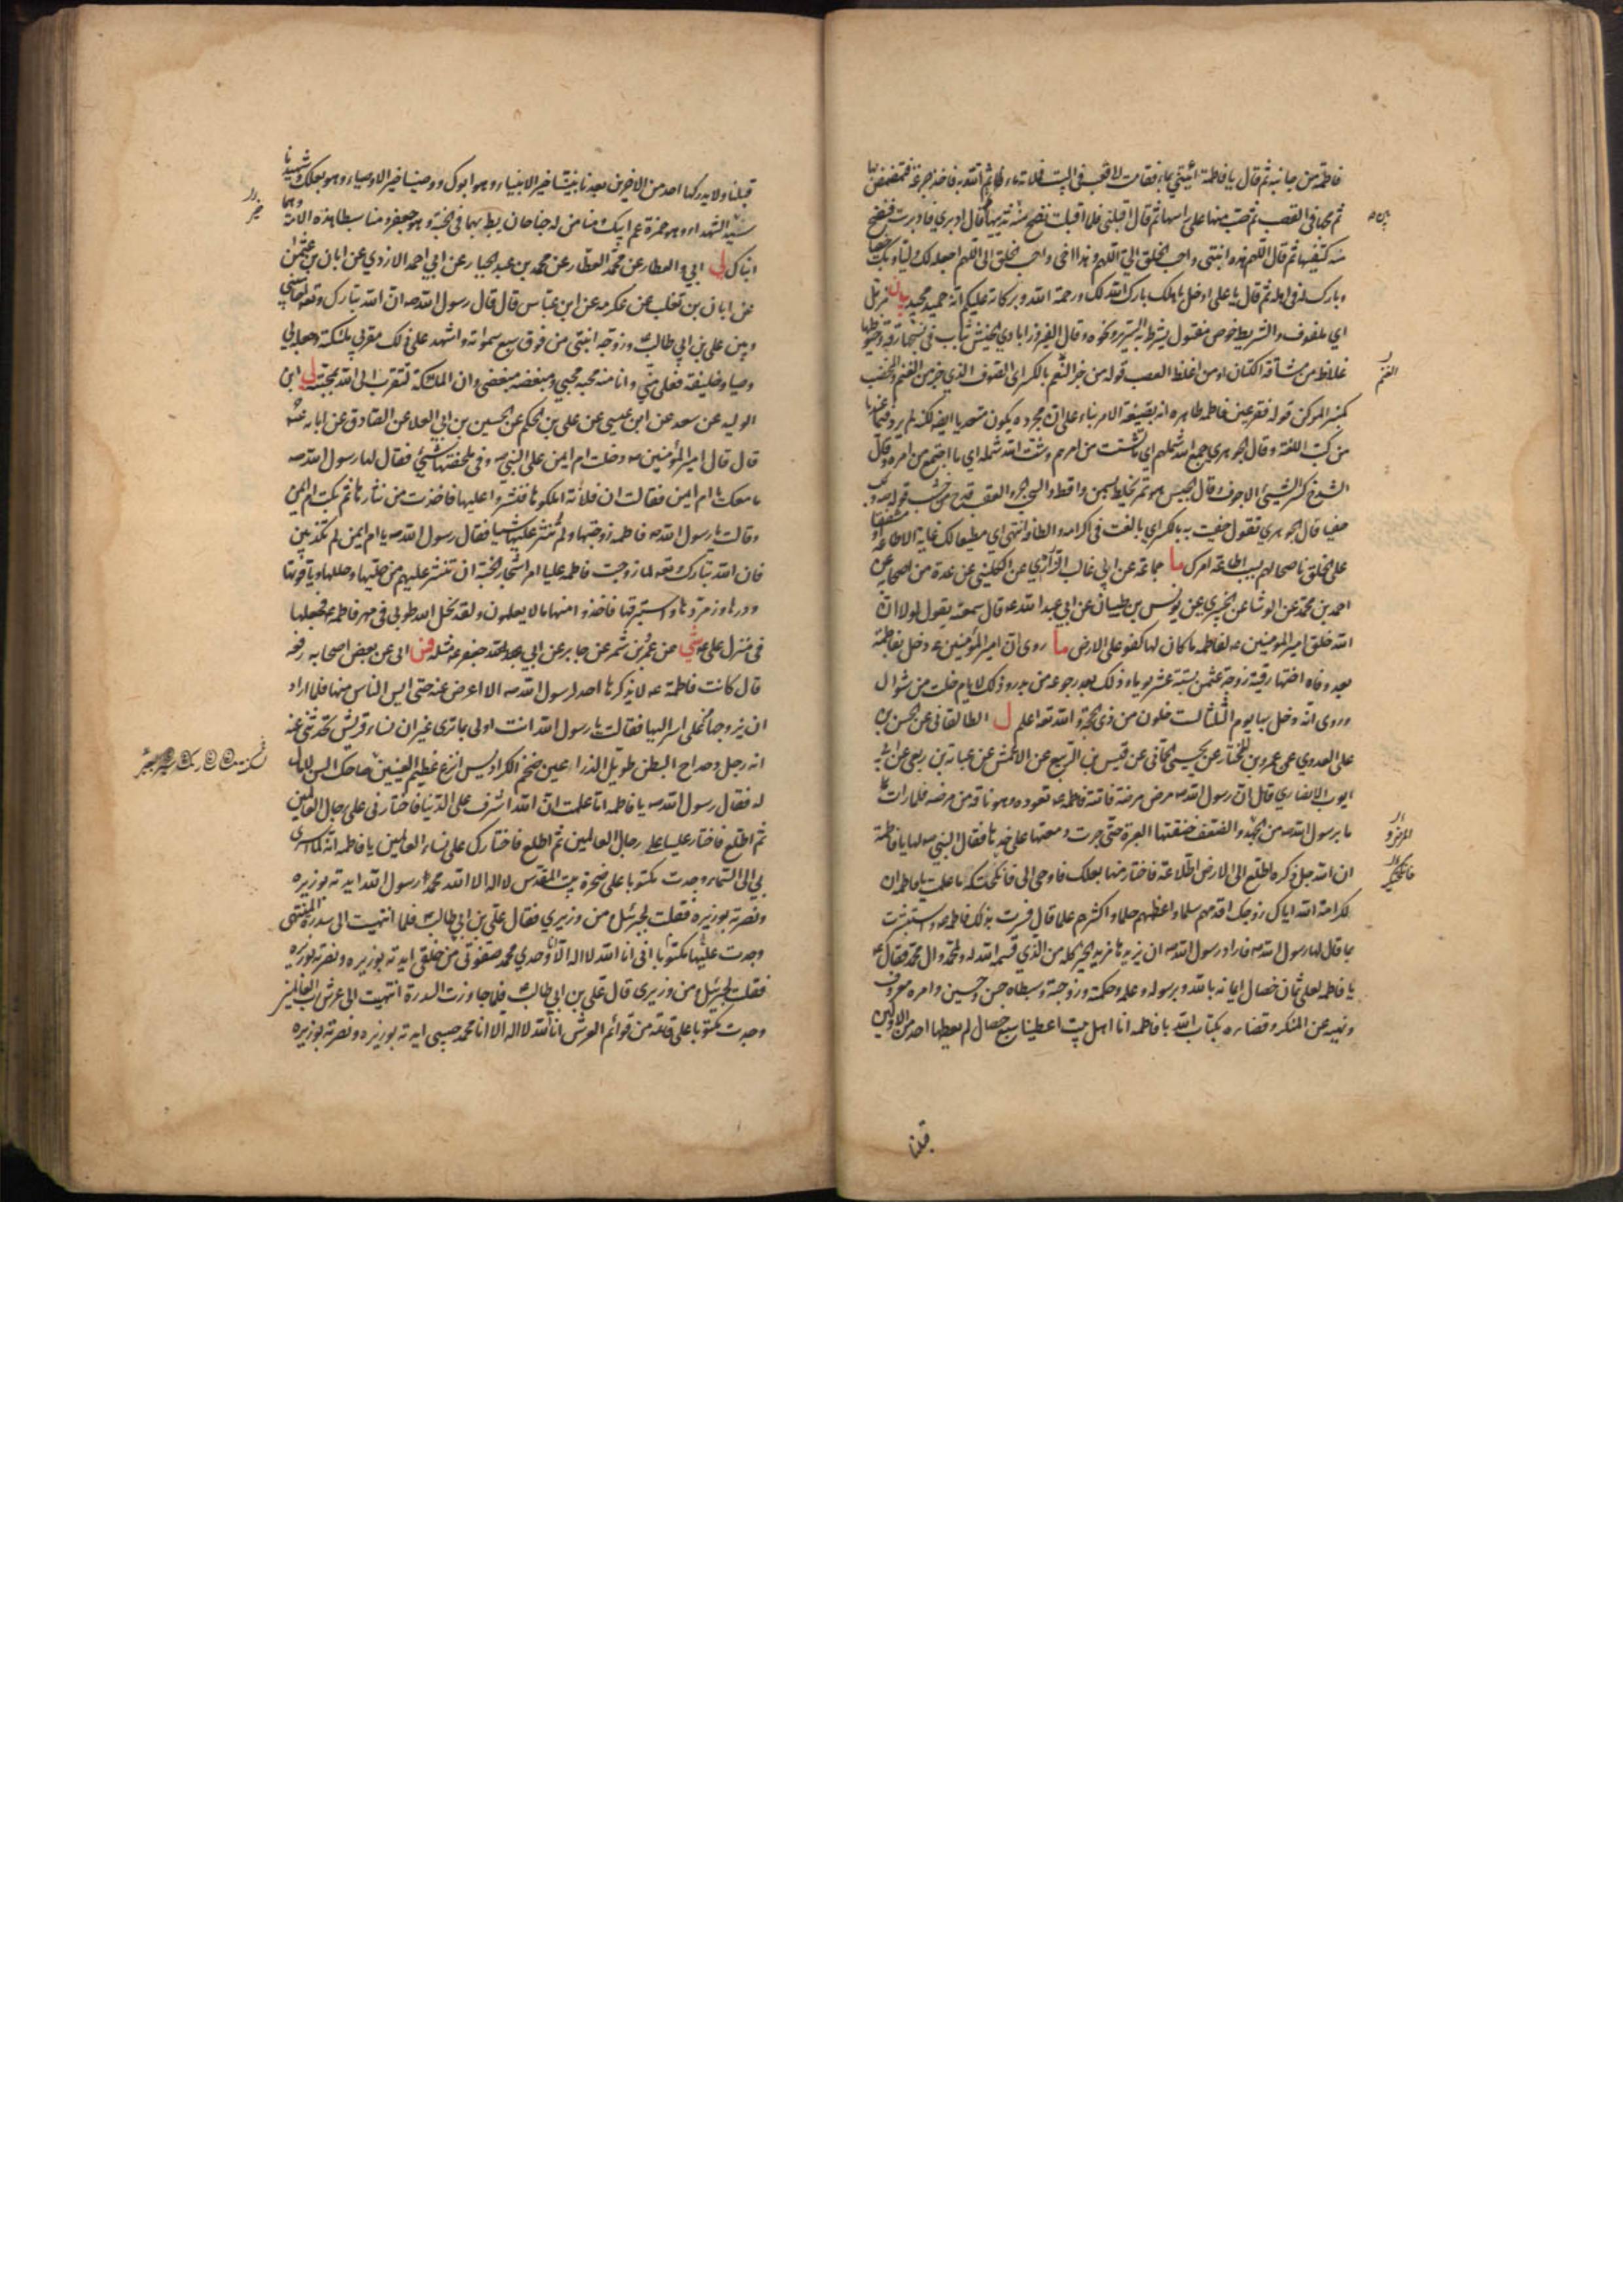 فاطمة من جانبه ثم قال يا فاطمة ائتيني بماء فقامت الى قعب في البيت فملاته ماء ثم اتته به فاخذ جرعة فتمضمض بها
ثم مجها في القعب ثم صب منها على راسها ثم قال اقبلي فلما اقبلت نضح منه بين ثدييها ثم قال ادبري فادبرت فنضح
منه بين كتفيها ثم قال اللهم هذه ابنتي واحب الخلق الي اللهم وهذا اخي واحب الخلق الي اللهم اجعله لك وليا وبك حفيا
وبارك له في اهله ثم قال يا علي ادخل باهلك بارك الله لك ورحمة الله وبركاته عليكم انه حميد مجيد بيان مزمل
اي ملفوف والشريط خوص مفتول يشرط به السرير ونحوه وقال الفيروزابادي الخيش ثياب في نسجها رقة وخيوطها
غلاظ من مشاقة الكتان او من اغلظ العصب قوله من جز الغنم بالكسر اي الصوف الذي جز من الغنم والمخضب
كمنبر المركن قوله فقر عين فاطمة ظاهره انه بصيغة الامر بناء على ان مجرده يكون متعديا ايضا لكنه لم يرد فيما عندنا
من كتب اللغة وقال الجوهري جمع الله شملهم اي ما تشتت من امرهم وشتت الله شمله اي ما اجتمع من امره وقال
الشدخ كسر الشيء الاجوف وقال الحيس هو تمر يخلط بسمن واقط والقعب قدح من خشب قوله وبك
حفيا قال الجوهري تقول حفيت به بالكسر اي بالغت في اكرامه والطافه انتهى اي مطيعا لك غاية الاطاعة او مشفقا
على الخلق ناصحا لهم بسبب اطاعة امرك ما جماعة عن ابي غالب الزراري عن الكليني عن عدة من اصحابه عن
احمد بن محمد عن الوشا عن الخيبري عن يونس بن ظبيان عن ابي عبد الله ع قال سمعته يقول لولا ان
الله خلق امير المومنين ع لفاطمة ما كان لها كفو على الارض ما روي ان امير المؤمنين ع دخل بفاطمة
بعد وفاة اختها رقية زوجة عثمن بستة عشر يوما وذلك بعد رجوعه من بدر وذلك لايام خلت من شوال
وروي انه دخل بها يوم الثلثا لست خلون من ذي الحجة والله تعه اعلم ل الطالقاني عن الحسن بن
علي العدوي عن عمرو بن المختار عن يحيى الحماني عن قيس بن الربيع عن الاعمش عن عباية بن ربعي عن ابي
ايوب الانصاري قال ان رسول الله ص مرض مرضة فاتته فاطمة ع تعوده وهو ناقه من مرضه فلما رات
ما برسول الله ص من الجهد والضعف خنقتها العبرة حتى جرت دمعتها على خدها فقال النبي ص لها يا فاطمة
ان الله جل ذكره اطلع الى الارض اطلاعة فاختار منها بعلك فاوحى الي فانكحتكه اما علمت يا فاطمة ان
لكرامة الله اياك زوجك اقدمهم سلما واعظمهم حلما واكثرهم علما قال فسرت بذلك فاطمة ع واستبشرت
بما قال لها رسول الله ص فاراد رسول الله ص ان يزيدها مزيد الخير كله من الذي قسمه الله له ولمحمد وال محمد فقال ع
يا فاطمة لعلي ثمان خصال ايمانه بالله وبرسوله وعلمه وحكمته وزوجته وسبطاه حسن وحسين وامره بمعروف
ونهيه عن المنكر وقضاءه بكتاب الله يا فاطمة انا اهل بيت اعطينا سبع خصال لم يعطها احد من الاولين
قبلنا
بين
الغنم
قبلنا ولا يدركها احد من الاخرين بعدنا نبينا خير الانبياء وهو ابوك ووصينا خير الاوصياء وهو بعلك وشهيدنا
سيد الشهداء وهو حمزة عم ابيك ومنا من له جناحان يطير بهما في الجنة وهو جعفر ومنا سبطا هذه الامة وهما
ابناك لي ابي و العطار عن محمد العطار عن محمد بن عبد الجبار عن ابي احمد الازدي عن ابان بن عثمن
عن ابان بن تغلب عن عكرمة عن ابن عباس قال قال رسول الله ص ان الله تبارك وتعه اخى بيني
وبين علي بن ابي طالب وزوجه ابنتي من فوق سبع سمواته واشهد على ذلك مقربي ملئكته وجعله لي
وصيا وخليفة فعلي مني وانا منه محبه محبي ومبغضه مبغضي وان الملئكة لتتقرب الى الله بمحبته لي ابن
الوليد عن سعد عن ابن عيسى عن علي بن الحكم عن الحسين بن ابي العلا عن الصادق عن ابائه ع
قال قال امير المؤمنين ع دخلت ام ايمن على النبي ص وفي ملحفتها شيء فقال لها رسول الله ص
ما معك يا ام ايمن فقالت ان فلانة املكوها فنثروا عليها فاخذت من نثارها ثم بكت ام ايمن
وقالت يا رسول الله ص فاطمة زوجتها ولم تنثر عليها شيئا فقال رسول الله ص يا ام ايمن لم تكذبين
فان الله تبارك وتعه لما زوجت فاطمة عليا امر اشجار الجنة ان تنثر عليهم من حليها وحللها وياقوتها
ودرها وزمردها واستبرقها فاخذوا منها ما لا يعلمون ولقد نحل الله طوبى في مهر فاطمة ع فجعلها
في منزل علي ع شي عن عمرو بن شمر عن جابر عن ابي جعفر ع مثله فس ابي عن بعض اصحابه رفعه
قال كانت فاطمة ع لا يذكرها احد لرسول الله ص الا اعرض عنه حتى ايس الناس منها فلما اراد
ان يزوجها من علي اسر اليها فقالت يا رسول الله انت اولى بما ترى غير ان نساء قريش تحدثني عنه
انه رجل دحداح البطن طويل الذراعين ضخم الكراديس انزع عظيم العينين ضاحك السن لا مال
له فقال رسول الله ص يا فاطمة اما علمت ان الله اشرف على الدنيا فاختارني على رجال العالمين
ثم اطلع فاختار عليا على رجال العالمين ثم اطلع فاختارك على نساء العالمين يا فاطمة انه لما اسري
بي الى السماء وجدت مكتوبا على صخرة بيت المقدس لا اله الا الله محمد رسول الله ايدته بوزيره
ونصرته بوزيره فقلت لجبرئيل ومن وزيري فقال علي بن ابي طالب فلما انتهيت الى سدرة المنتهى
وجدت عليها مكتوبا اني انا الله لا اله الا انا وحدي محمد صفوتي من خلقي ايدته بوزيره ونصرته بوزيره
فقلت لجبرئيل ومن وزيري قال علي بن ابي طالب فلما جاوزت السدرة انتهيت الى عرش رب العالمين
وجدت مكتوبا على قائمة من قوائم العرش انا الله لا اله الا انا محمد حبيبي ايدته بوزيره ونصرته بوزيره